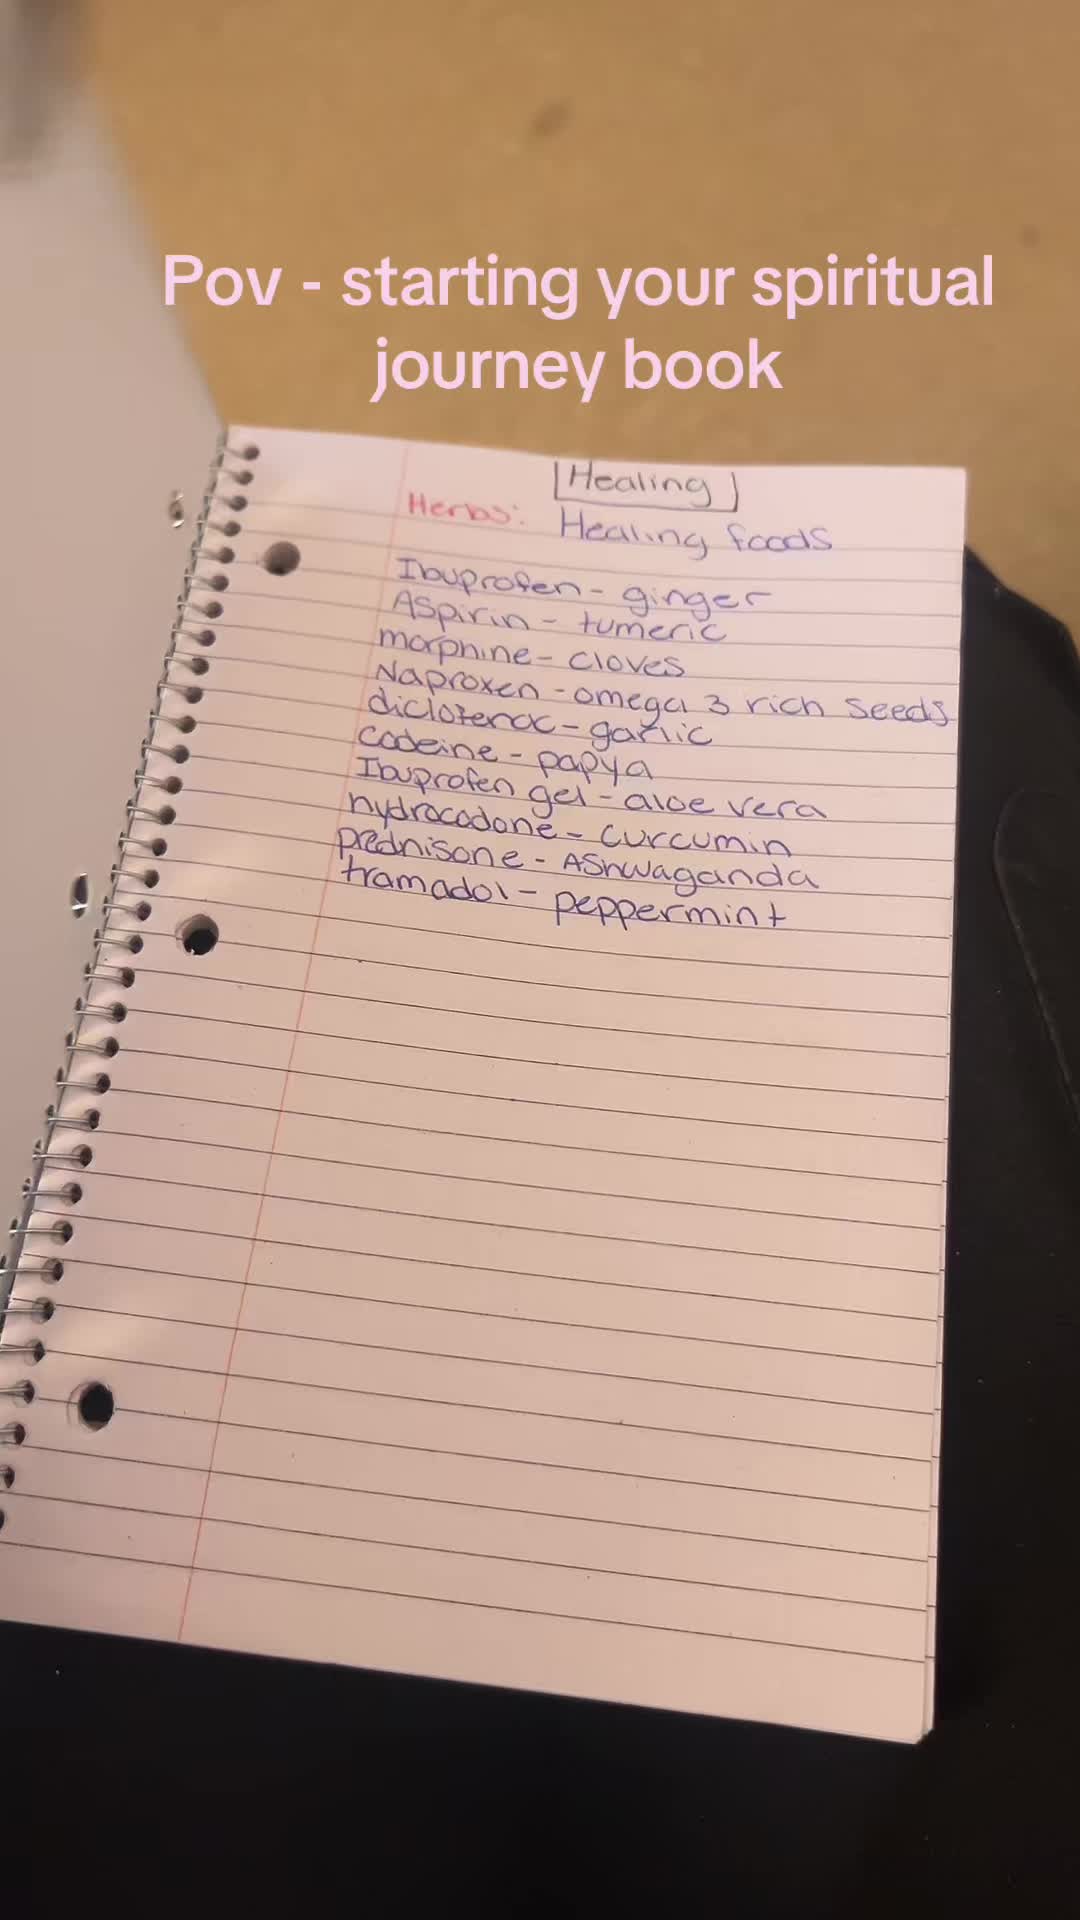 Pov - starting your spiritual
journey book
Healing
Herbs: Healing foods
Ibuprofen - ginger
Aspirin - tumeric
morphine - cloves
Naproxen - omega 3 rich seeds
diclofenac - garlic
codeine - papya
Ibuprofen gel - aloe vera
hydrocodone - curcumin
prednisone - Ashwaganda
tramadol - peppermint